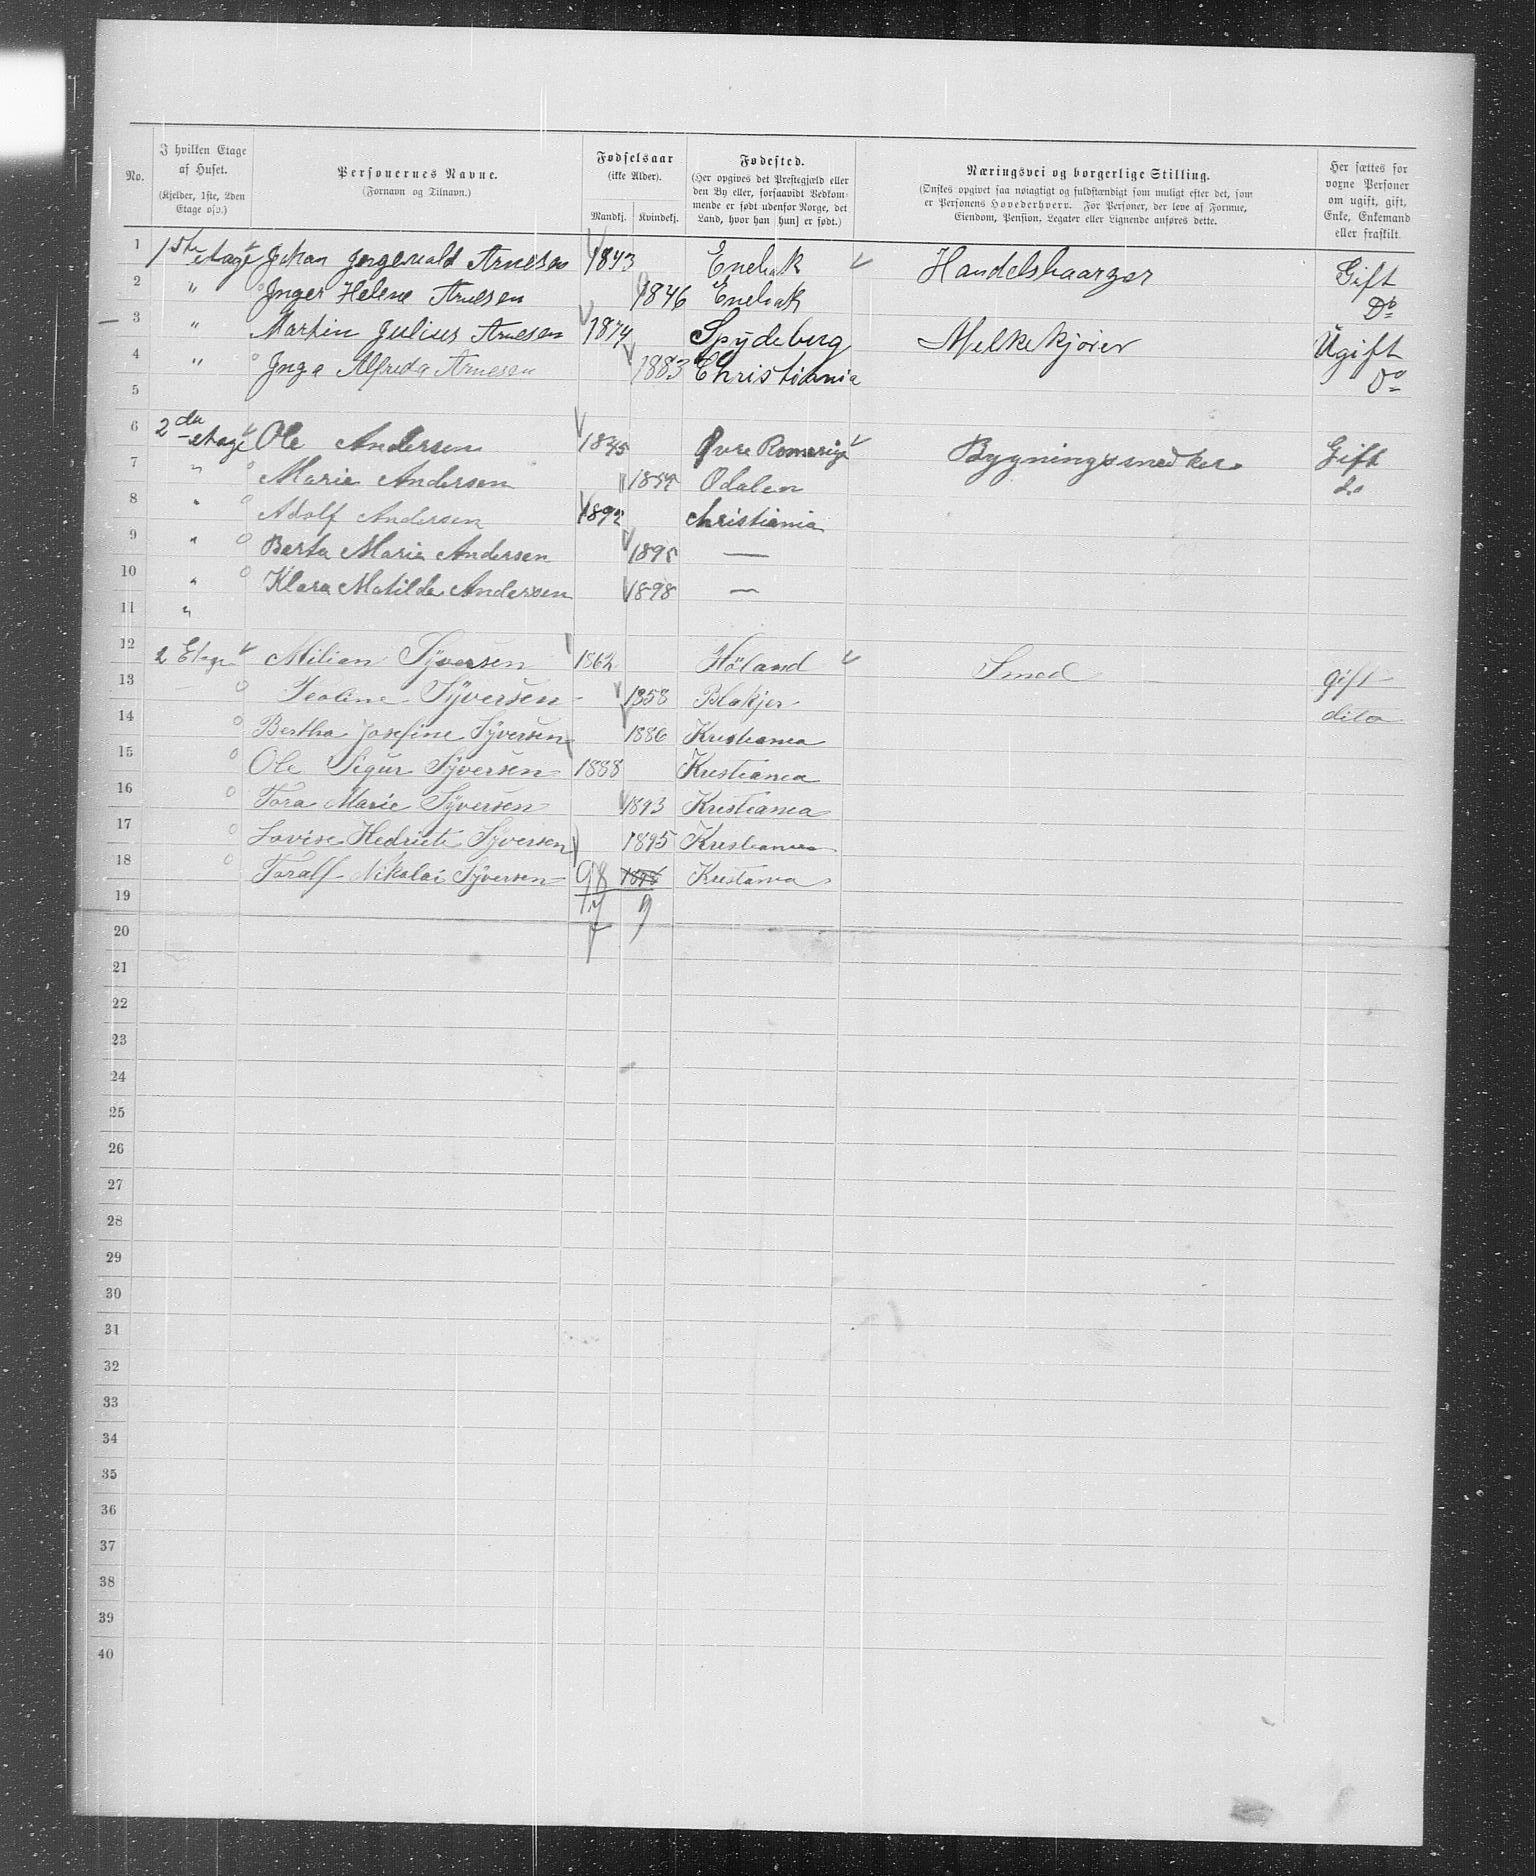 No. | I hvilken Etage af Huset. (Kjelder, 1ste, 2den Etage osv.) | Personernes Navne. (Fornavn og Tilnavn.) | Fødselsaar (ikke Alder). Mandkj. Kvindekj. | Fødested. (Her opgives det Prestegjæld eller den By eller, forsaavidt Vedkommende er født udenfor Norge, det Land, hvor han [hun] er født.) | Næringsvei og borgerlige Stilling. (Ønskes opgivet saa nøiagtigt og fuldstændigt som muligt efter det, som er Personens Hovederhverv. For Personer, der leve af Formue, Eiendom, Pension, Legater eller Lignende anføres dette. | Her sættes for voxne Personer om ugift, gift, Enke, Enkemand eller fraskilt.
1 1ste etage Johan Jngervald Arnesen 1843 Enebak Handelsbaarger Gift
2 " Jnger Helene Arnesen 1846 Enebak Do
3 " Martin Julius Arnesen 1874 Spydeberg Melkekjører Ugift
4 " Jnga Alfreda Arnesen 1883 Christiania Do
5
6 2den etage Ole Andersen 1845 Øvre Romerige Bygningssnedker Gift
7 " Marie Andersen Odalen do
8 " Adolf Andersen 1892 Christiania
9 " Berta Marie Andersen 1895 —
10 " Klara Matilde Andersen 1898 —
11 "
12 2 Etage Milian Syversen 1862 Höland Smed gift
13 Teoline Syversen 1858 Blakjer dito
14 Bertha Josefine Syversen 1886 Kristiania
15 Ole Sigur Syversen 1888 Kristiania
16 Tora Marie Syversen 1893 Kristiania
17 Lovise Hedriete Syversen 1895 Kristiania
18 Toralf Nikolai Syversen 98 1898 Kristiania
19 7 9
20
21
22
23
24
25
26
27
28
29
30
31
32
33
34
35
36
37
38
39
40